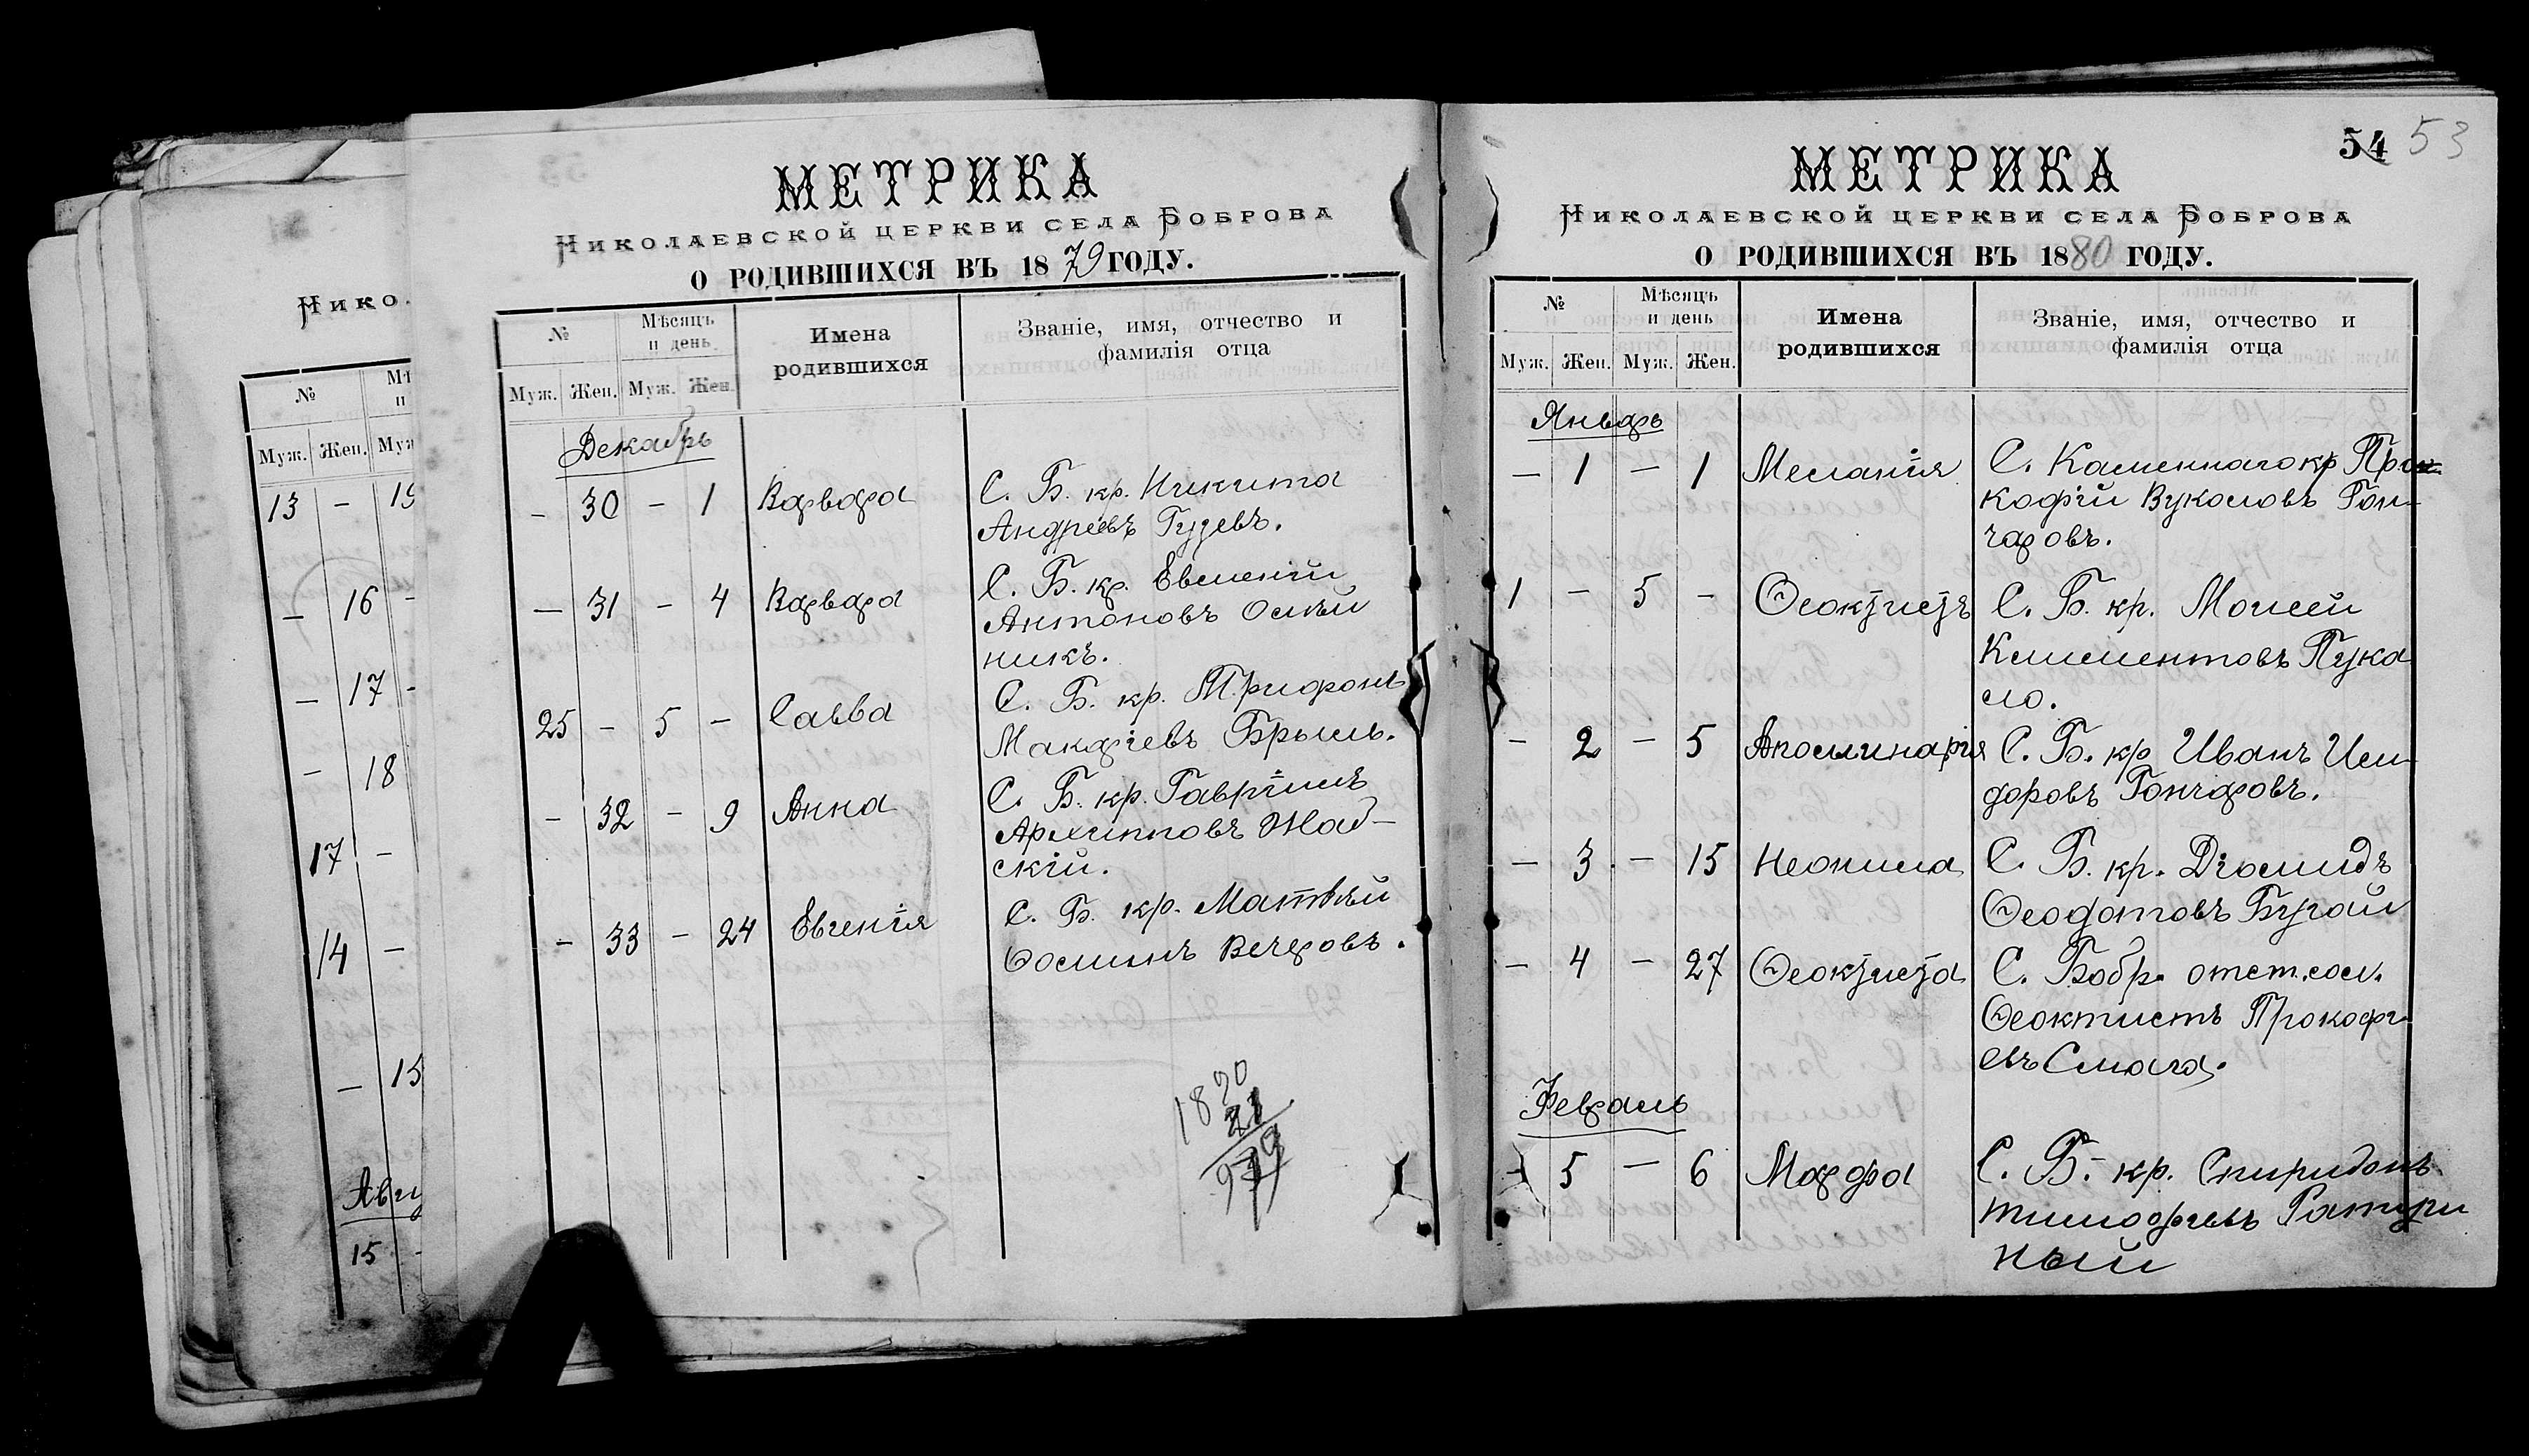 Нико
№ Мѣ
и
Муж. Жен. Муж
13 – 19
– 16 –
– 17 -
– 18
17 –
14 –
– 15
Авгу
15 -
МЕТРИКА
Николаевской церкви села Боброва
О РОДИВШИХСЯ ВЪ 1879 ГОДУ.
№ Мѣсяцъ и день Имена родившихся Званіе, имя, отчество и
фамилія отца
Муж. Жен. Муж. Жен.
Декабрь
– 30 – 1 Варвара С. Б. кр. Никита
Андреевъ Гузевъ.
– 31 – 4 Варвара С. Б. кр. Евменій
Антоновъ Ослѣй
никъ.
25 – 5 – Савва С. Б. кр. Трифонъ
Макаріевъ Брыль.
– 32 – 9 Анна С. Б. кр. Гавріилъ
Архипповъ Жаб–
скій.
– 33 – 24 Евгенія С. Б. кр. Матвѣй
Ѳоминъ Вечеровъ.
18
МЕТРИКА
54 53
Николаевской церкви села Боброва
О РОДИВШИХСЯ ВЪ 1880 ГОДУ.
№ Мѣсяцъ и день Имена родившихся Званіе, имя, отчество и
фамилія отца
Муж. Жен. Муж. Жен.
Январь
– 1 – 1 Меланія С. Каменнаго кр Про
кофій Вуколовъ Гон–
чаровъ.
1 – 5 – Ѳеоктистъ С. Б. кр. Моисей
Климентовъ Пука
ло.
– 2 – 5 Аполлинарія С. Б. кр Иванъ Иси–
доровъ Гончаровъ.
– 3 – 15 Неонила С. Б. кр. Діомидъ
Ѳеодотовъ Бугай
– 4 – 27 Ѳеоктиста С. Бобр. отст. сол.
Ѳеоктистъ Прокофі
евъ Смага.
Февраль
– 5 – 6 Марфа С. Б. кр. Спиридонъ
Тимофеевъ Ратури
ный